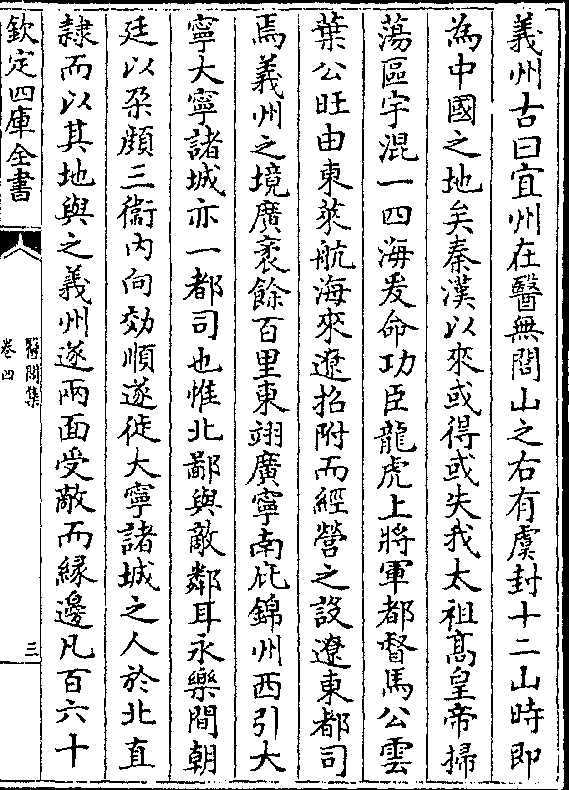 義州古曰宜州在醫無閭山之右有虞封十二山時即
為中國之地矣秦漢以來或得或失我太祖髙皇帝掃
蕩區宇混一四海爰命功臣龍虎上將軍都督馬公雲
葉公旺由東萊航海來遼招附而經營之設遼東都司
焉義州之境廣袤餘百里東翊廣寧南庇錦州西引大
寧大寧諸城亦一都司也惟北鄙與敵鄰耳永樂間朝
廷以朶顔三衞内向効順遂徙大寧諸城之人於北直
隸而以其地與之義州遂兩面受敵而縁邊凡百六十
欽定四庫全書
醫閭集
卷四
三